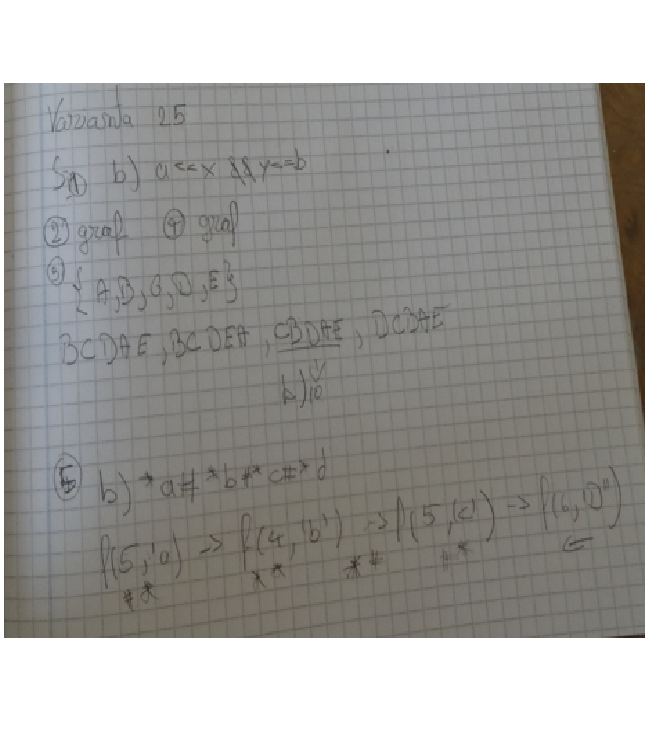 Varianta 25
S① b) a<=x && y<=b
② graf ④ graf
③ {A,B,C,D,E}
BCDAE, BCDEA, CBDAE, DCBAE
b)
⑤ b) *a#*b#*c#*d
f(5,'a) -> f(4,'b') -> f(5,'c') -> f(6,'D'')
#* ** *# #*